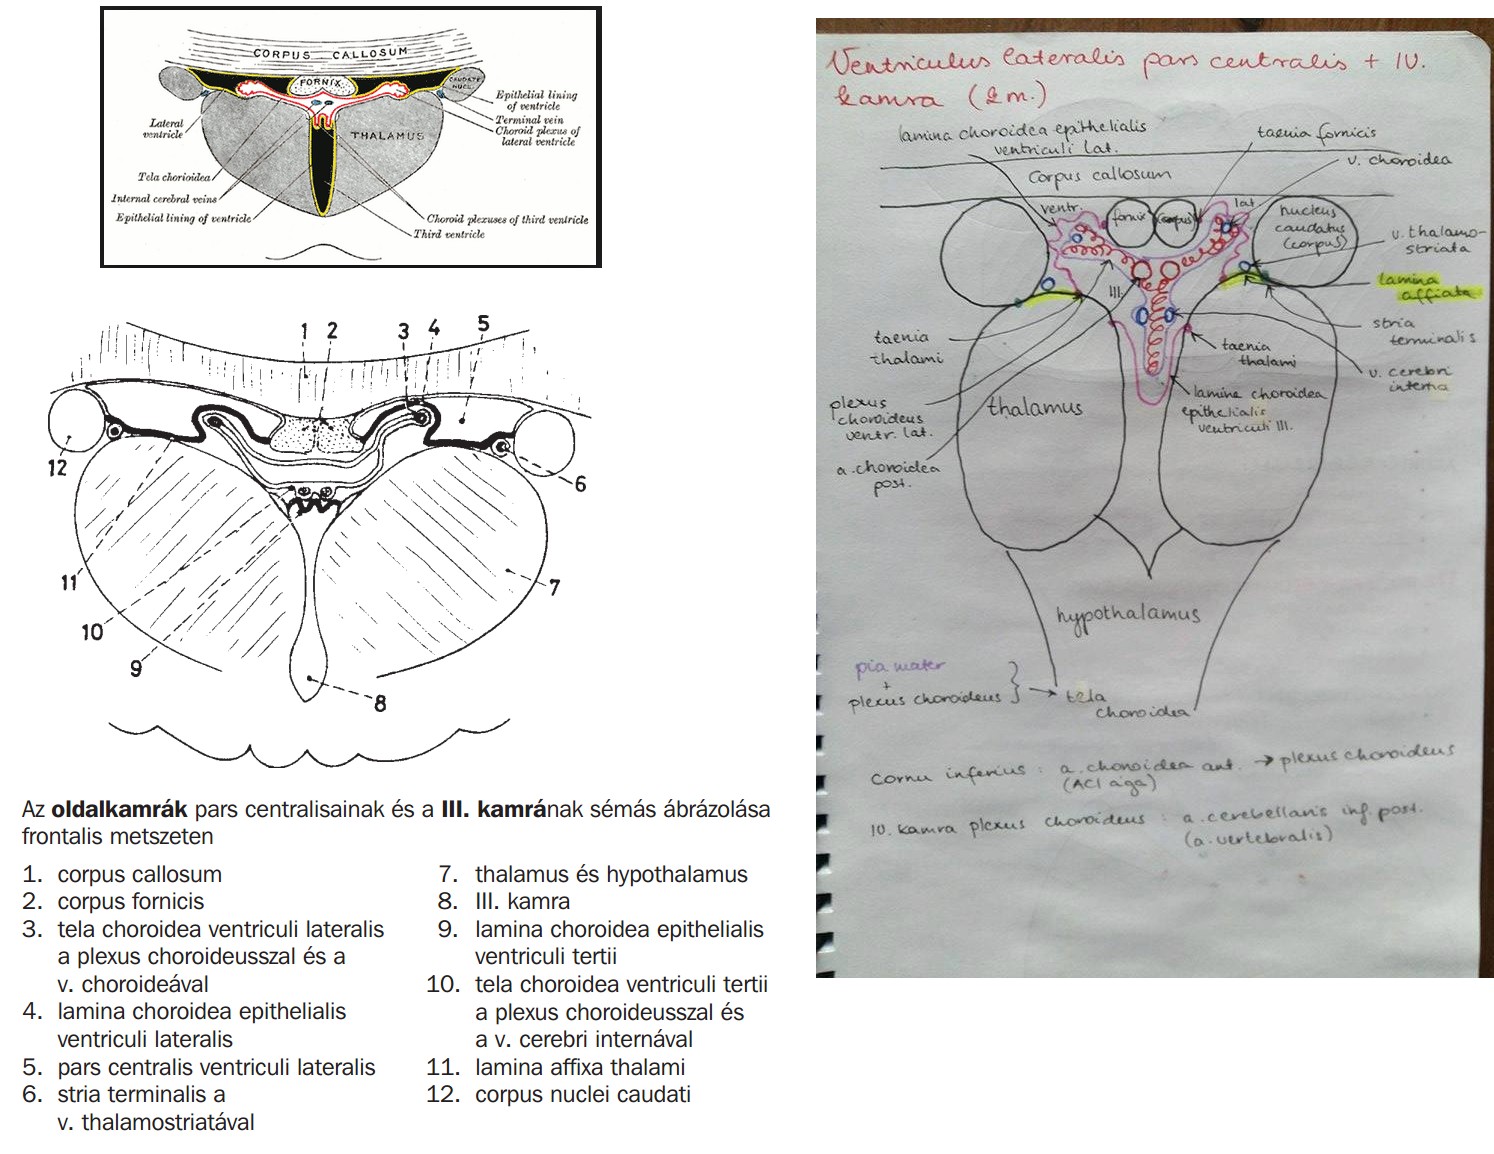 CORPUS CALLOSUM
FORNIX
CAUDATE
NUCL.
Epithelial lining
of ventricle
Terminal vein
Choroid plexus of
lateral ventricle
Lateral
ventricle
THALAMUS
Tela chorioidea
Internal cerebral veins
Epithelial lining of ventricle
Choroid plexuses of third ventricle
Third ventricle
1 2 3 4 5
12
6
11
7
10
9
8
Az oldalkamrák pars centralisainak és a III. kamrának sémás ábrázolása
frontalis metszeten
1. corpus callosum
2. corpus fornicis
3. tela choroidea ventriculi lateralis
a plexus choroideusszal és a
v. choroideával
4. lamina choroidea epithelialis
ventriculi lateralis
5. pars centralis ventriculi lateralis
6. stria terminalis a
v. thalamostriatával
7. thalamus és hypothalamus
8. III. kamra
9. lamina choroidea epithelialis
ventriculi tertii
10. tela choroidea ventriculi tertii
a plexus choroideusszal és
a v. cerebri internával
11. lamina affixa thalami
12. corpus nuclei caudati
Ventriculus lateralis pars centralis + IV.
kamra (2m.)
lamina choroidea epithelialis
ventriculi lat.
taenia fornicis
v. choroidea
Corpus callosum
ventr.
fornix
(corpus)
lat.
nucleus
caudatus
(corpus)
v. thalamo-
striata
lamina
affixata
III.
stria
terminalis
taenia
thalami
taenia
thalami
v. cerebri
interna
plexus
choroideus
ventr. lat.
thalamus
lamina choroidea
epithelialis
ventriculi III.
a. choroidea
post.
hypothalamus
pia mater
+
plexus choroideus } → tela
choroidea
Cornu inferius : a. choroidea ant. → plexus choroideus
(ACI ága)
IV. kamra plexus choroideus : a. cerebellaris inf. post.
(a. vertebralis)